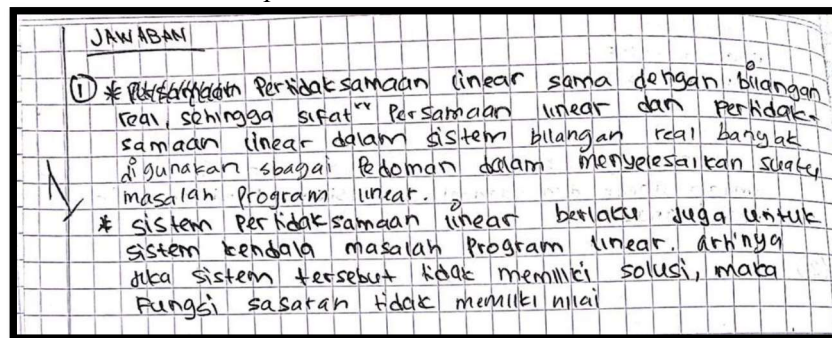 JAWABAN
① * Pertidaksamaan linear sama dengan bilangan
real, sehingga sifat" Persamaan linear dan Pertidak-
samaan linear dalam sistem bilangan real banyak
digunakan sbagai Pedoman dalam menyelesaikan suatu
masalah Program linear.
* sistem Pertidaksamaan linear berlaku juga untuk
sistem kendala masalah Program linear. artinya
jika sistem tersebut tidak memiliki solusi, maka
Fungsi sasaran tidak memiliki nilai